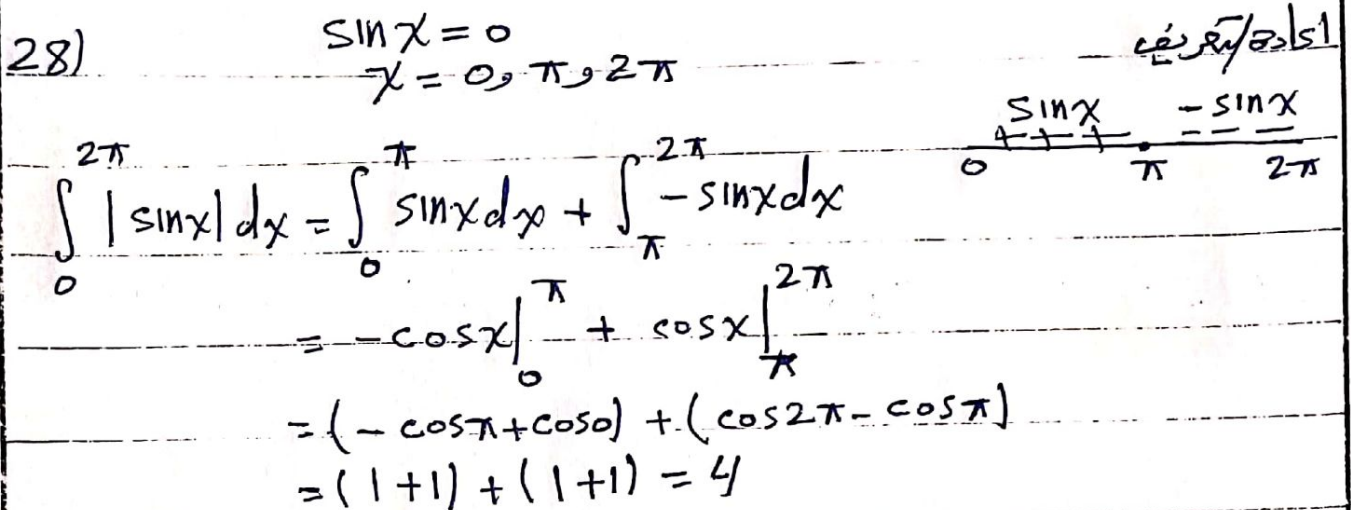 28) sinx = 0
x = 0 و π و 2π
اعادة تعريف
sinx -sinx
+ + + - - -
0 π 2π
∫₀^{2π} |sinx| dx = ∫₀^{π} sinx dx + ∫_{π}^{2π} -sinx dx
= -cosx|₀^{π} + cosx|_{π}^{2π}
= (-cosπ + cos0) + (cos2π - cosπ)
= (1+1) + (1+1) = 4